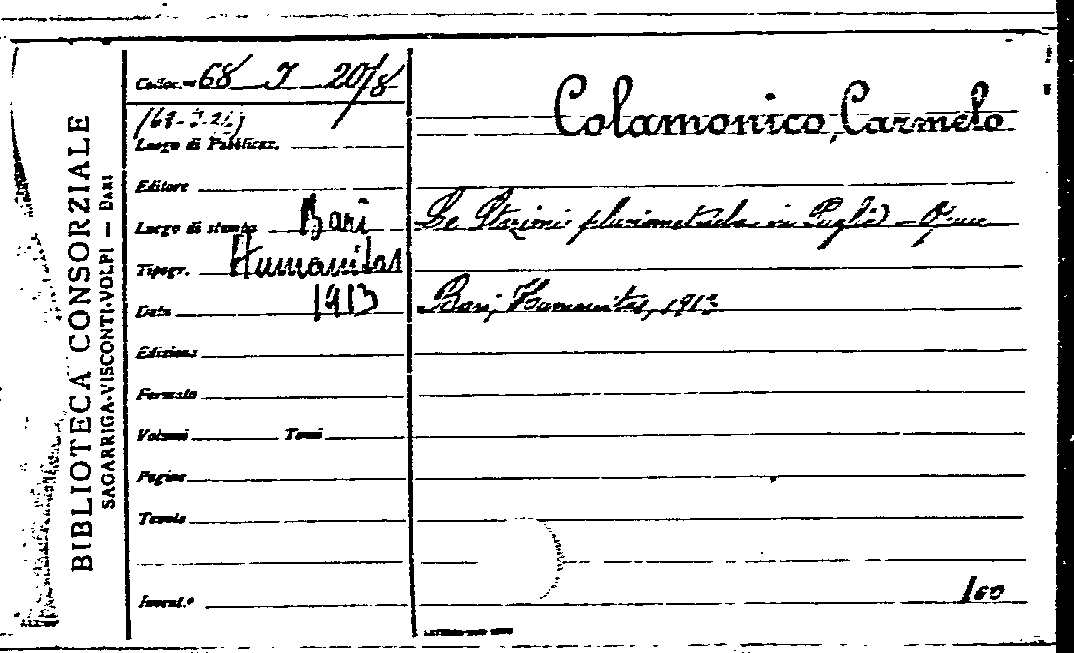 BIBLIOTECA CONSORZIALE
SAGARRIGA-VISCONTI-VOLPI — BARI
Colloc.ne 68 I 20/8
Luogo di Pubblicaz.
Editore
Luogo di stampa Bari
Tipogr. Humanitas
Data 1913
Edizione
Formato
Volumi Tomi
Pagine
Tavole
Invent.°
Colamonico, Carmelo
Le Stazioni pluviometriche in Puglia
Bari, Humanitas, 1913